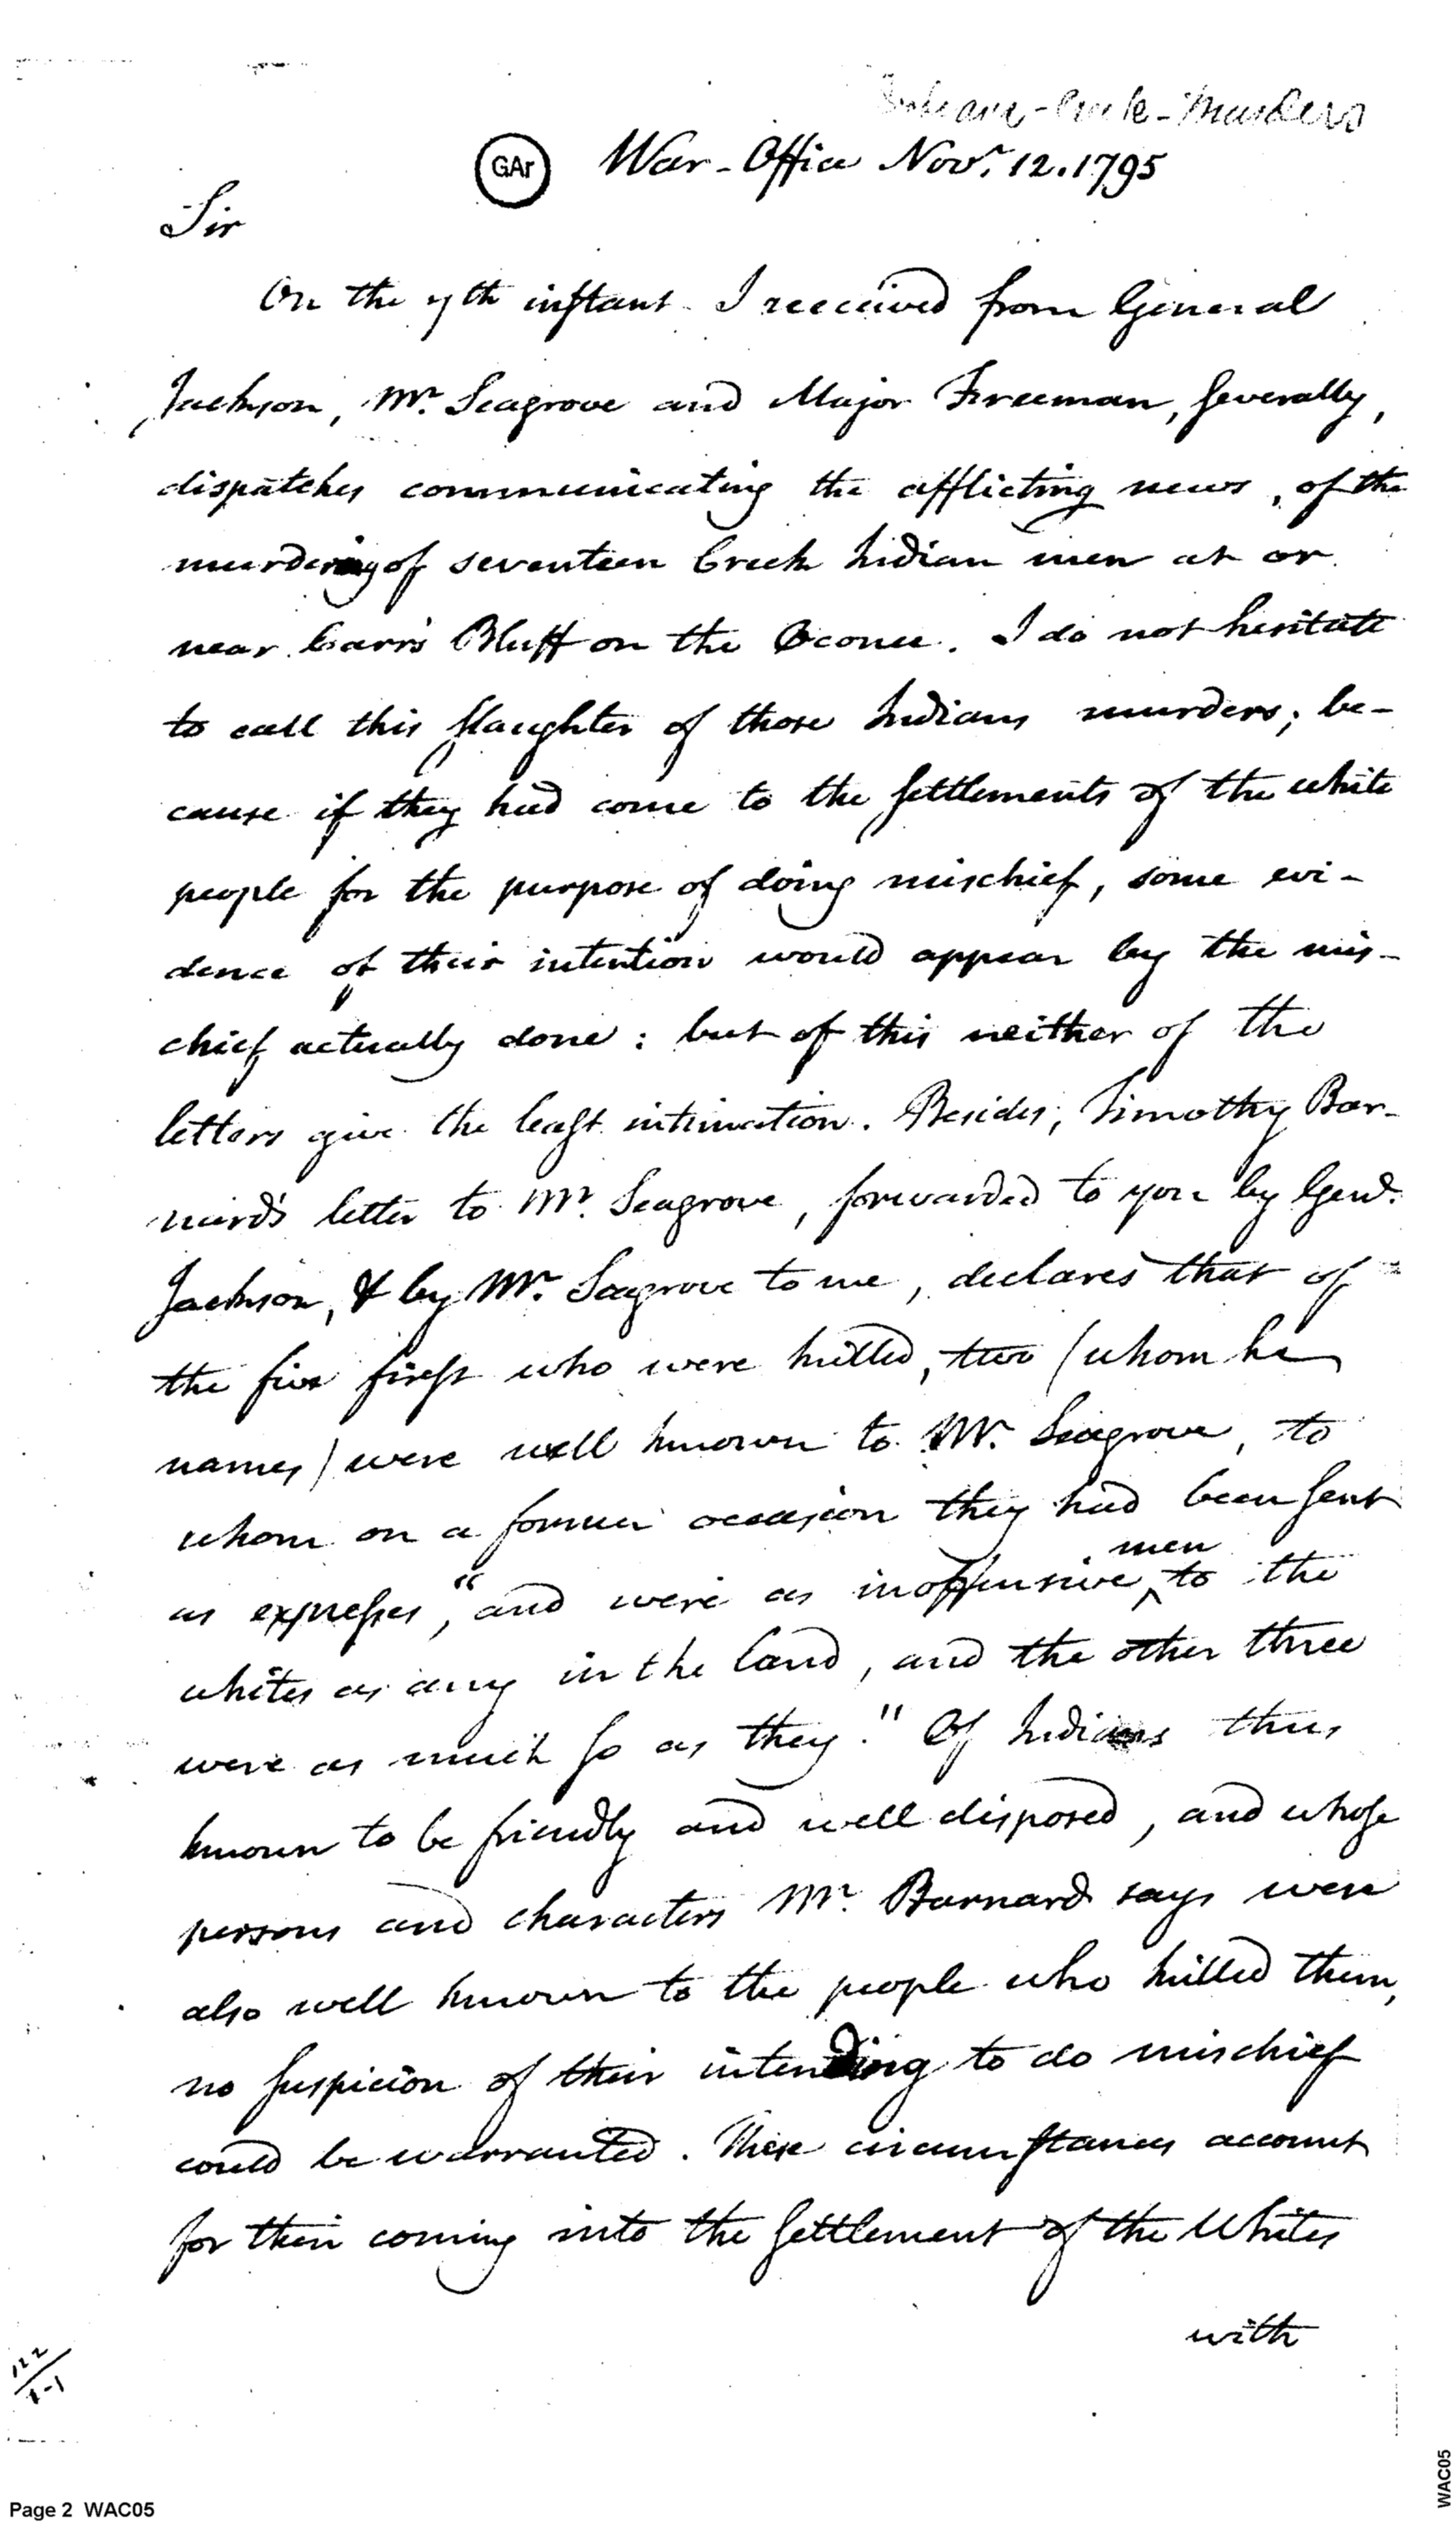 Indians-Creek-Murders
GAr War-Office Novr. 12. 1795
Sir
On the 7th instant I received from General
Jackson, Mr. Seagrove and Major Freeman, severally,
dispatches communicating the afflicting news, of the
murdering of seventeen Creek Indian men at or
near Carr's Bluff on the Oconee. I do not hesitate
to call this slaughter of those Indians murders; be-
cause if they had come to the settlements of the white
people for the purpose of doing mischief, some evi-
dence of their intention would appear by the mis-
chief actually done: but of this neither of the
letters give the least intimation. Besides, Timothy Bar-
nard's letter to Mr. Seagrove, forwarded to you by Genl.
Jackson, & by Mr. Seagrove to me, declares that of
the five first who were killed, two (whom he
names) were well known to Mr. Seagrove, to
whom on a former occasion they had been sent
men
as expresses, "and were as inoffensive ^ to the
whites as any in the land, and the other three
were as much so as they." Of Indians thus
known to be friendly and well disposed, and whose
persons and characters Mr. Barnard says were
also well known to the people who killed them,
no suspicion of their intending to do mischief
could be warranted. These circumstances account
for their coming into the settlement of the Whites
with
122
1-1
Page 2 WAC05
WAC05